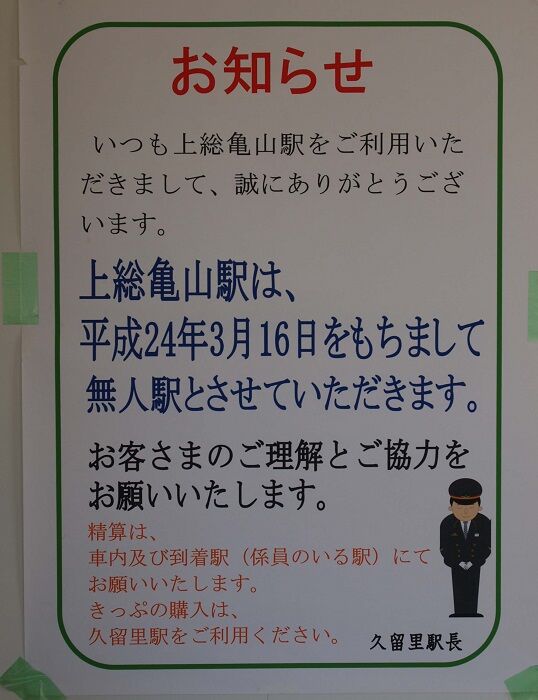 お知らせ
いつも上総亀山駅をご利用いた
だきまして、誠にありがとうござ
います。
上総亀山駅は、
平成24年3月16日をもちまして
無人駅とさせていただきます。
お客さまのご理解とご協力を
お願いいたします。
精算は、
車内及び到着駅（係員のいる駅）にて
お願いいたします。
きっぷの購入は、
久留里駅をご利用ください。
久留里駅長